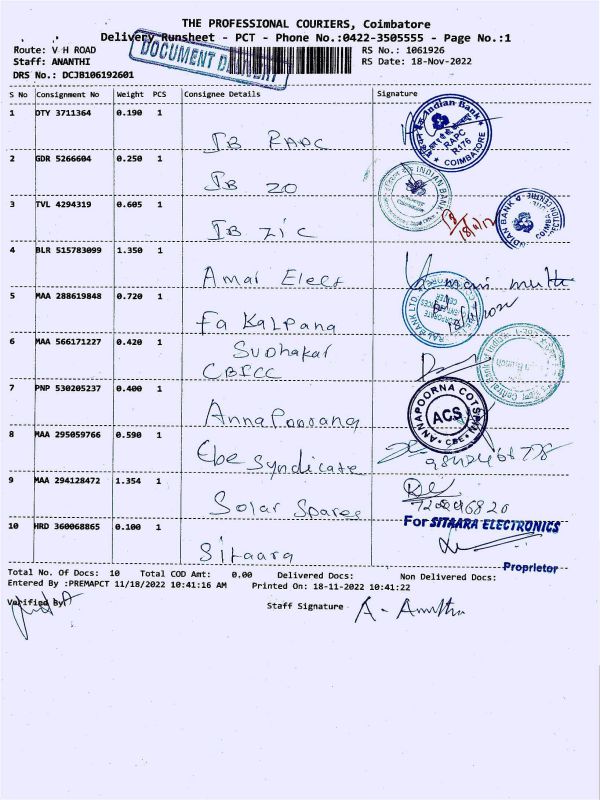 THE PROFESSIONAL COURIERS, Coimbatore
Delivery Runsheet - PCT - Phone No.:0422-3505555 - Page No.:1
Route: V H ROAD RS No.: 1061926
Staff: ANANTHI RS Date: 18-Nov-2022
DRS No.: DCJB106192601
DOCUMENT
S No Consignment No Weight PCS Consignee Details Signature
1 DTY 3711364 0.190 1 IB RAPC
Indian Bank RAPC R176 COIMBATORE
2 GDR 5266604 0.250 1 IB ZO
INDIAN BANK
3 TVL 4294319 0.605 1 IB ZIC
INDIAN BANK
4 BLR 515783099 1.350 1 Amar Elect
5 MAA 288619848 0.720 1 Fa Kalpana
18/11/2022
6 MAA 566171227 0.420 1 Sudhakar
CBPCC
7 PNP 530205237 0.400 1 Annapoorana
ANNAPOORNA ACS CBE
8 MAA 295059766 0.590 1 Cbe Syndicate
9 MAA 294128472 1.354 1 Solar Spares
10 HRD 360068865 0.100 1 Sitaara
For SITAARA ELECTRONICS
Proprietor
Total No. Of Docs: 10 Total COD Amt: 0.00 Delivered Docs: Non Delivered Docs:
Entered By :PREMAPCT 11/18/2022 10:41:16 AM Printed On: 18-11-2022 10:41:22
Verified By: Staff Signature